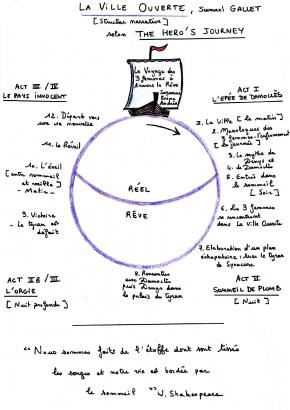 LA VILLE OUVERTE, Samuel GALLET
[Structure narrative]
selon THE HERO'S JOURNEY
Le Voyage des
3 femmes à
travers le Rêve
Suzanne
Andréa
ACT III / IV
LE PAYS INNOCENT
ACT I
L'EPÉE DE DAMOCLÈS
12. Départ vers
une vie nouvelle
1. La Ville [le matin]
2. Monologues des
3 femmes
[la journée]
11. Le Réveil
3. Le mythe de
Denys et
4. de Damoclès
10. L'éveil
[entre sommeil
et veille]
- Matin -
5. Entrée dans
le sommeil
[Soir]
RÉEL
RÊVE
9. Victoire
- Le tyran est
défait
6. Les 3 femmes
se rencontrent
dans La Ville Ouverte
7. Elaboration d'un plan
: tuer le tyran
de Syracuse
ACT II B / III
L'ORGIE
[Nuit profonde]
8. Rencontres
avec Damoclès
puis Denys dans
le palais du tyran
ACT II
SOMMEIL DE PLOMB
[Nuit]
" Nous sommes faits de l'étoffe dont sont tissés
les songes et notre vie est bordée par
le sommeil " W. Shakespeare